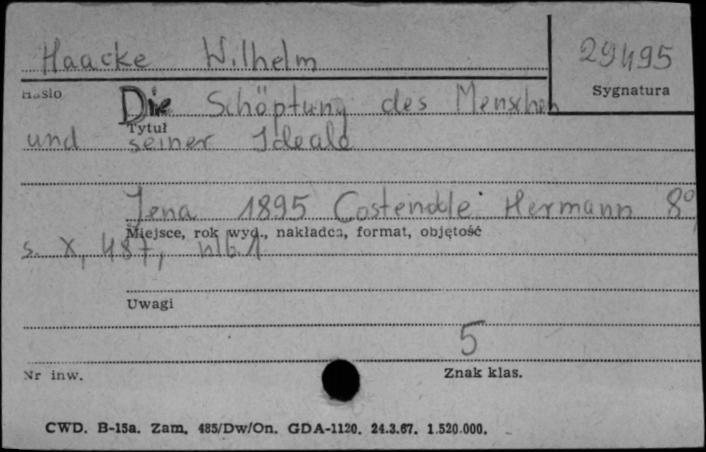 Haacke Wilhelm
29495
Hasło
Sygnatura
Die Schöptung des Menschen
Tytuł
und seiner Ideale
Jena 1895 Costenoble Hermann 8°
Miejsce, rok wyd., nakładca, format, objętość
s. X, 487, nlb. 1
Uwagi
5
Nr inw.
Znak klas.
CWD. B-15a. Zam. 485/Dw/On. GDA-1120. 24.3.67. 1.520.000.